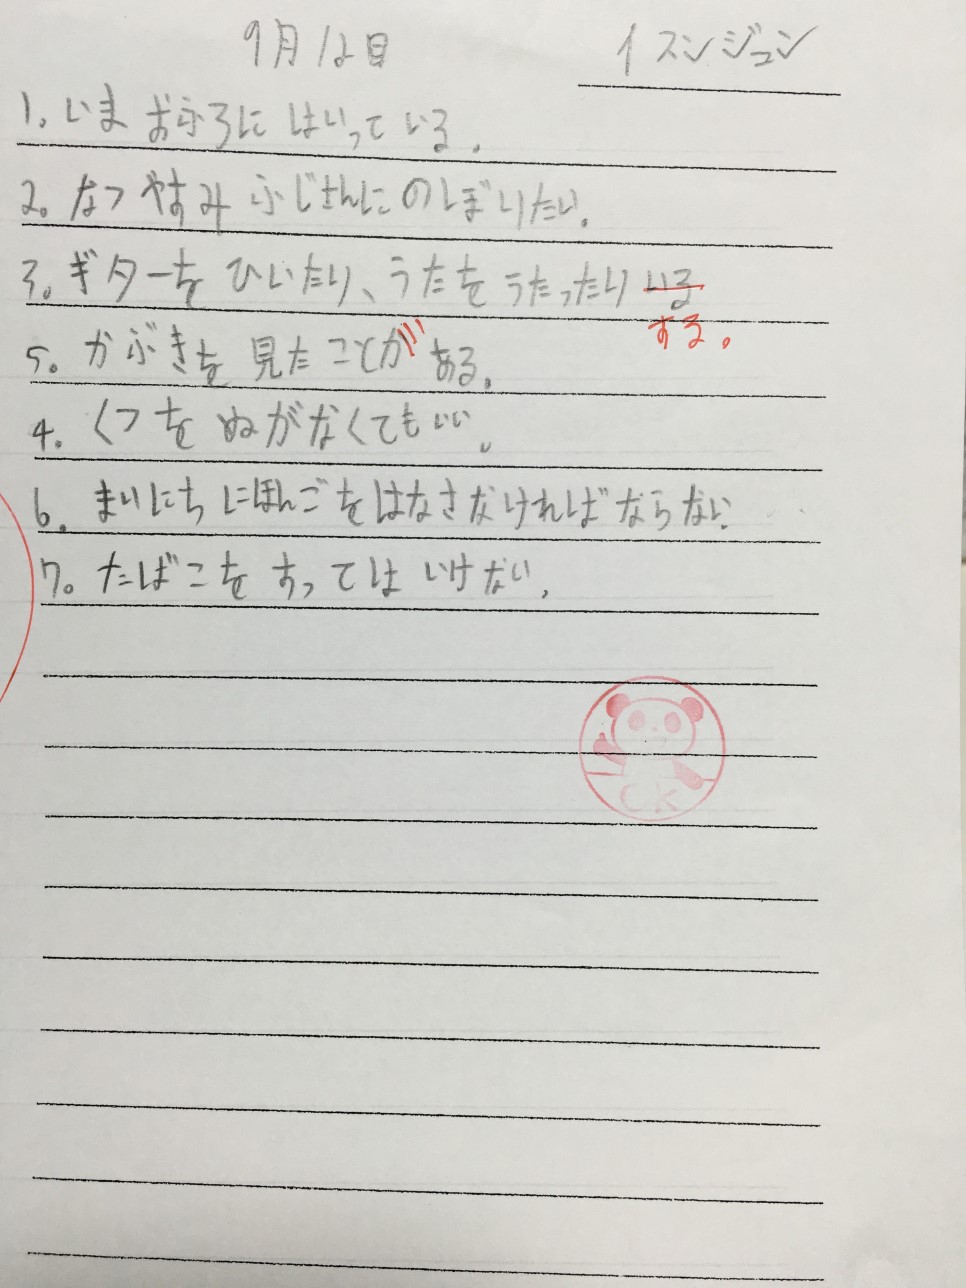 9月12日 イスンジュン
1. いま おふろに はいって いる。
2. なつ やすみ ふじさんに のぼりたい。
3. ギターを ひいたり、うたを うたったり いる
する。
5. かぶきを 見た ことが ある。
4. くつを ぬがなくても いい。
6. まいにち にほんごを はなさなければ ならない
7. たばこを すっては いけない。
CK